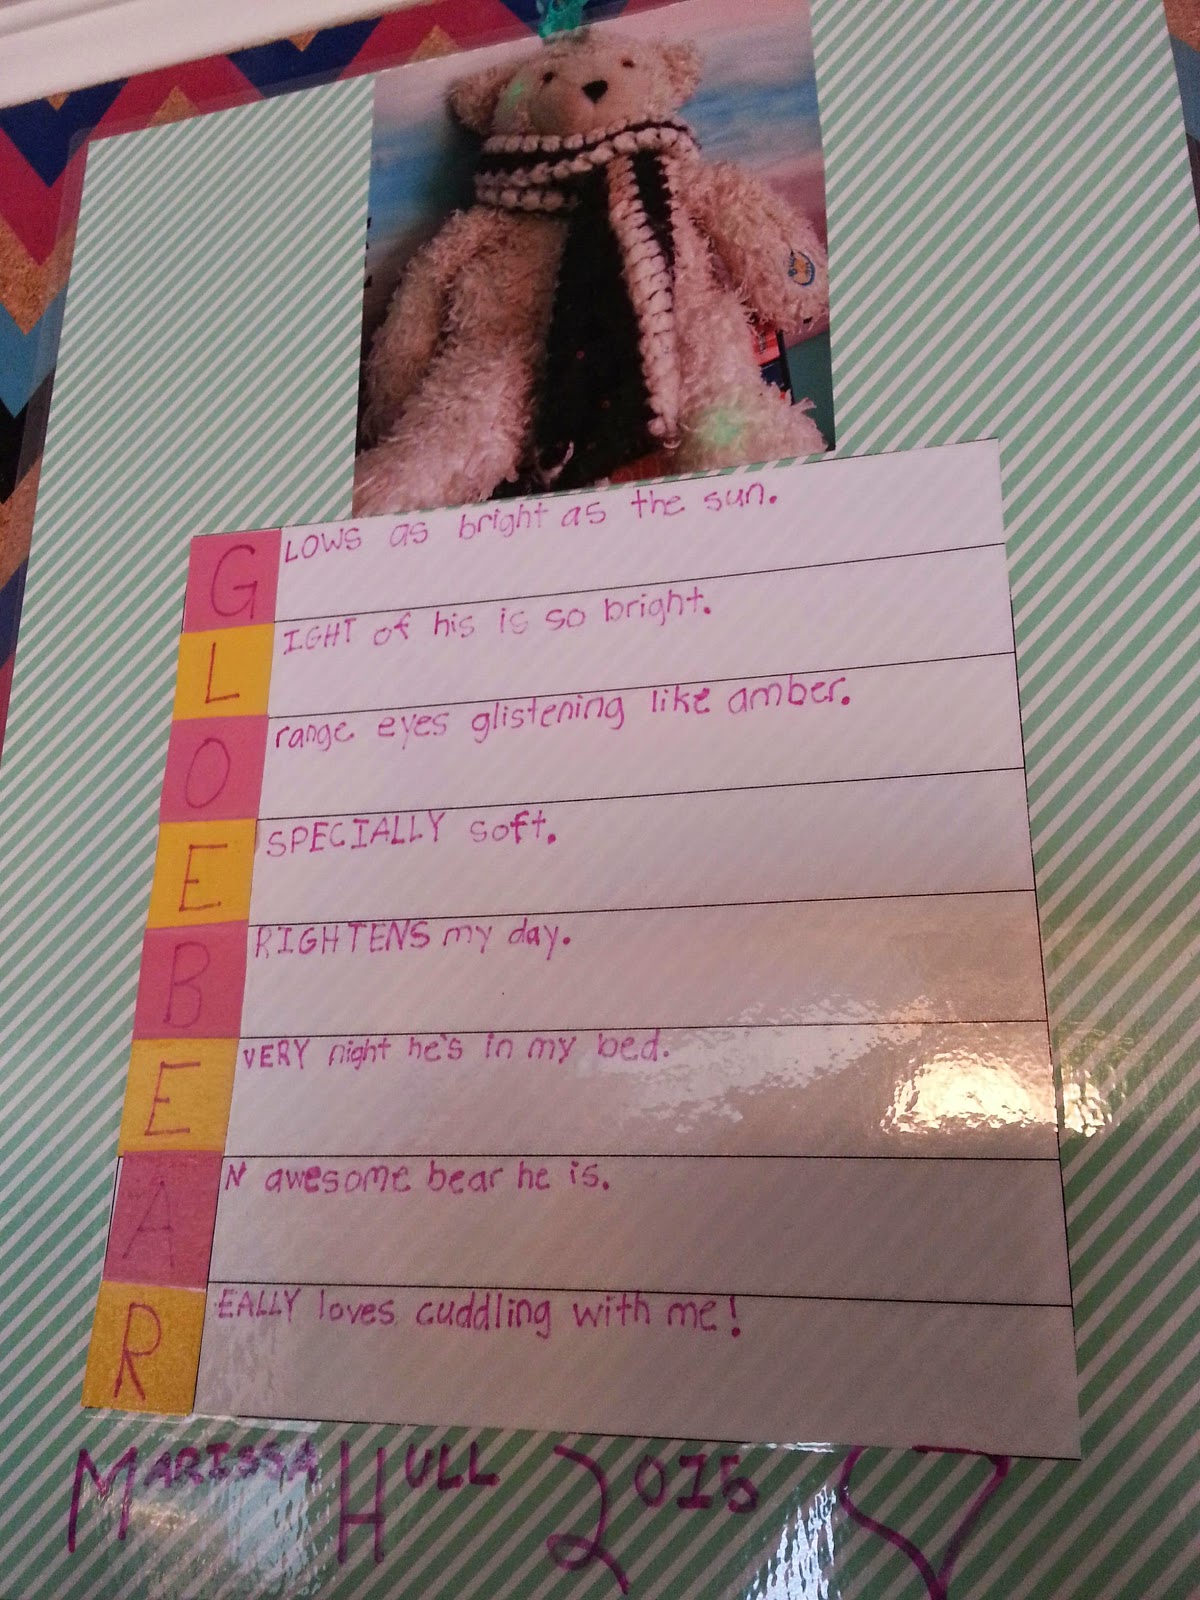 GLOWS as bright as the sun.
LIGHT of his is so bright.
Orange eyes glistening like amber.
ESPECIALLY soft.
BRIGHTENS my day.
EVERY night he's in my bed.
AN awesome bear he is.
REALLY loves cuddling with me!
MARISSA HULL 2015